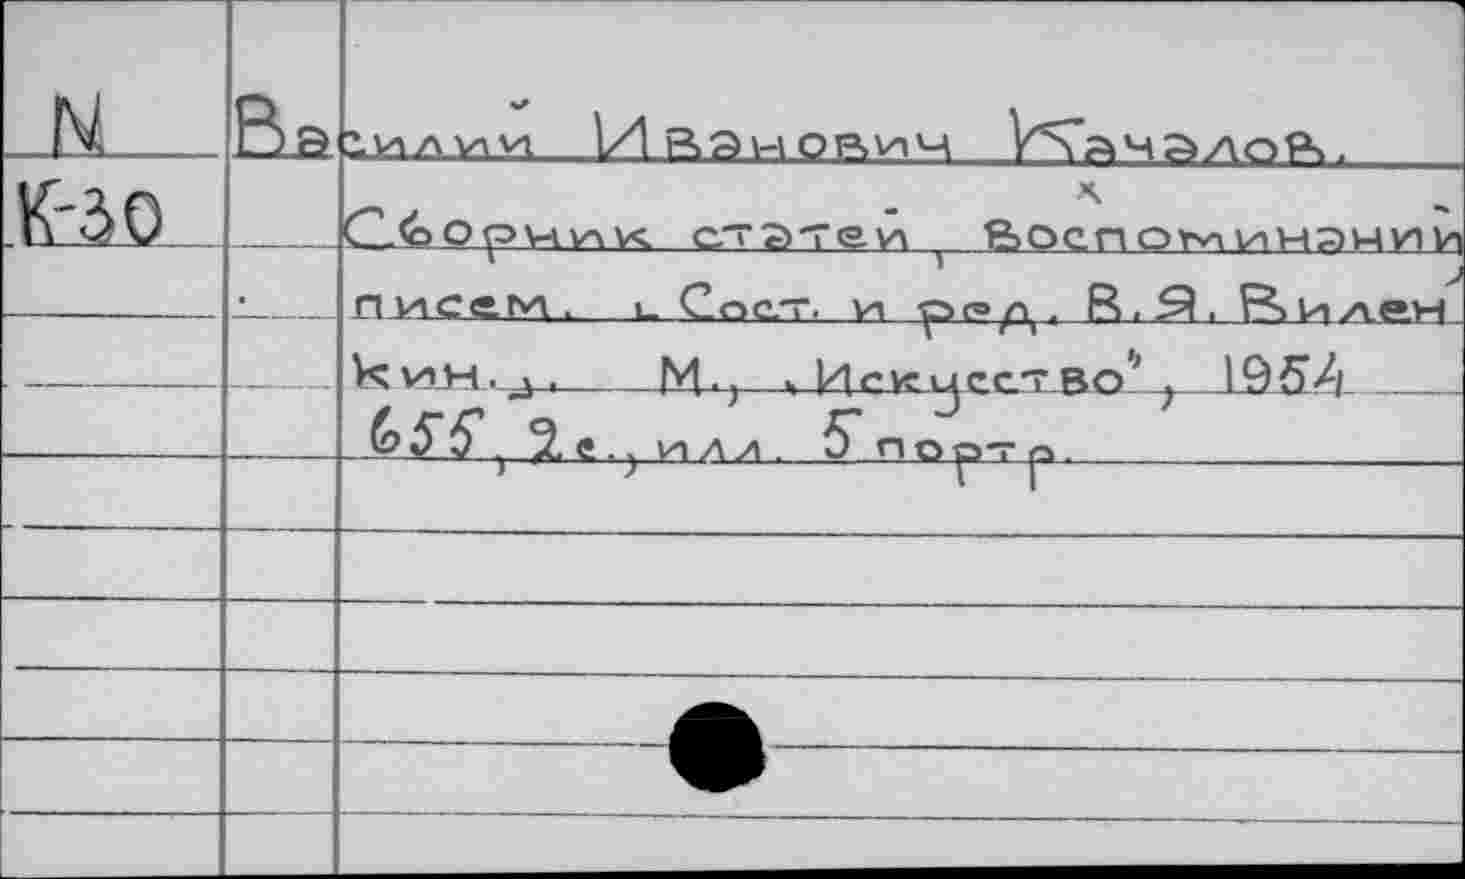 N Василий Иванович Качалов.
К-30 Сборник статей, воспоминаний
писем. Сост. и ред. В.Я. Вилен
кин. М., "Искусство", 1954
655, 2 с., илл. 5 портр.